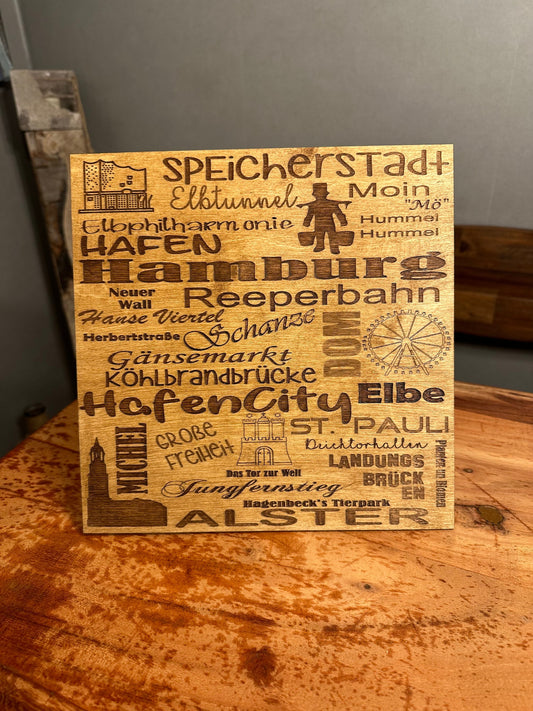 SPEicherstadt
Elbtunnel
Moin
"Mö"
Elbphilharmonie
Hummel
Hummel
HAFEN
Hamburg
Neuer
Wall
Reeperbahn
Hanse Viertel
Schanze
Herbertstraße
DOM
Gänsemarkt
Köhlbrandbrücke
HafenCity
Elbe
MICHEL
GROßE
FREIHEIT
ST. PAULI
Deichtorhallen
Das Tor zur Welt
LANDUNGS
BRÜCK
EN
Jungfernstieg
Hagenbeck's Tierpark
ALSTER